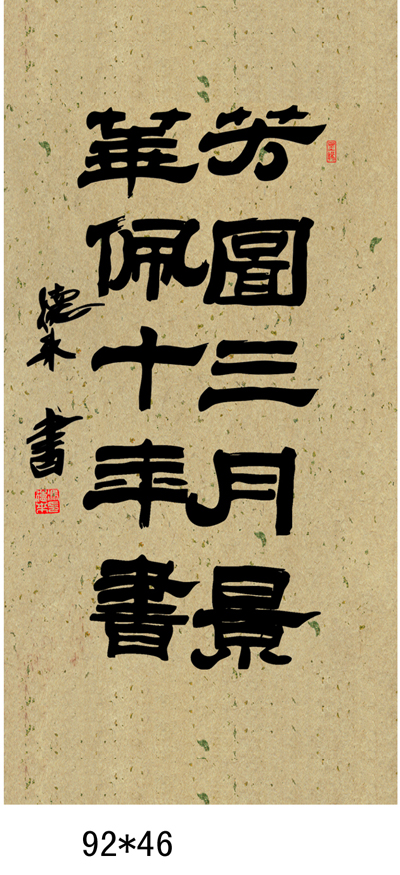 芳圖三月景
華佩十年書
德永書
92*46